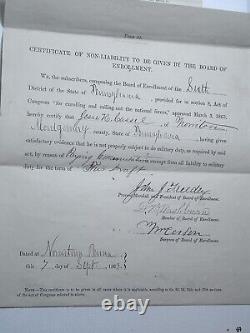 FORM 33.
CERTIFICATE OF NON-LIABILITY TO BE GIVEN BY THE BOARD OF
ENROLLMENT.
We, the subscribers, composing the Board of Enrollment of the Sixth
District of the State of Pennsylvania, provided for in section 8, Act of
Congress "for enrolling and calling out the national forces," approved March 3, 1863,
hereby certify that of
Montgomery county, State of Pennsylvania, having given
satisfactory evidence that he is not properly subject to do military duty, as required by said
act, by reason of Paying Commutation exempt from all liability to military
duty for this Draft
John J. Freedley
Provost Marshal and President of Board of Enrollment.
Member of Board of Enrollment.
Surgeon of Board of Enrollment.
Dated at Norristown Penna
this 7 day of Sept 1863.
NOTE.—This certificate is to be given in all cases where it is applicable, according to the
of the act of Congress referred to above.